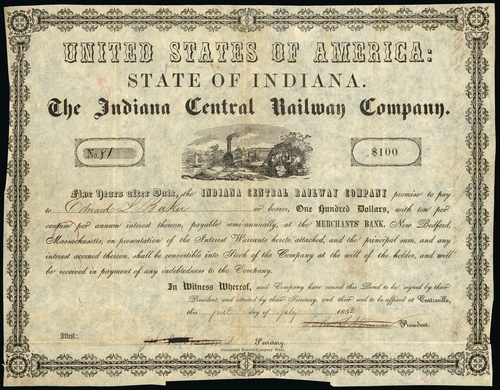 UNITED STATES OF AMERICA:
STATE OF INDIANA.
The Indiana Central Railway Company.
No. 81
$100
Five Years after Date, the INDIANA CENTRAL RAILWAY COMPANY promise to pay
to Edward L. Baker or bearer, One Hundred Dollars, with ten per
centum per annum interest thereon, payable semi-annually, at the MERCHANTS BANK, New Bedford,
Massachusetts, on presentation of the Interest Warrants hereto attached, and the principal sum, and any
interest accrued thereon, shall be convertible into Stock of the Company at the will of the holder, and will
be received in payment of any indebtedness to the Company.
In Witness Whereof, said Company have caused this Bond to be signed by their
President, and attested by their Secretary, and their seal to be affixed at Centreville,
this first day of July 1852
President.
Attest:
Secretary.